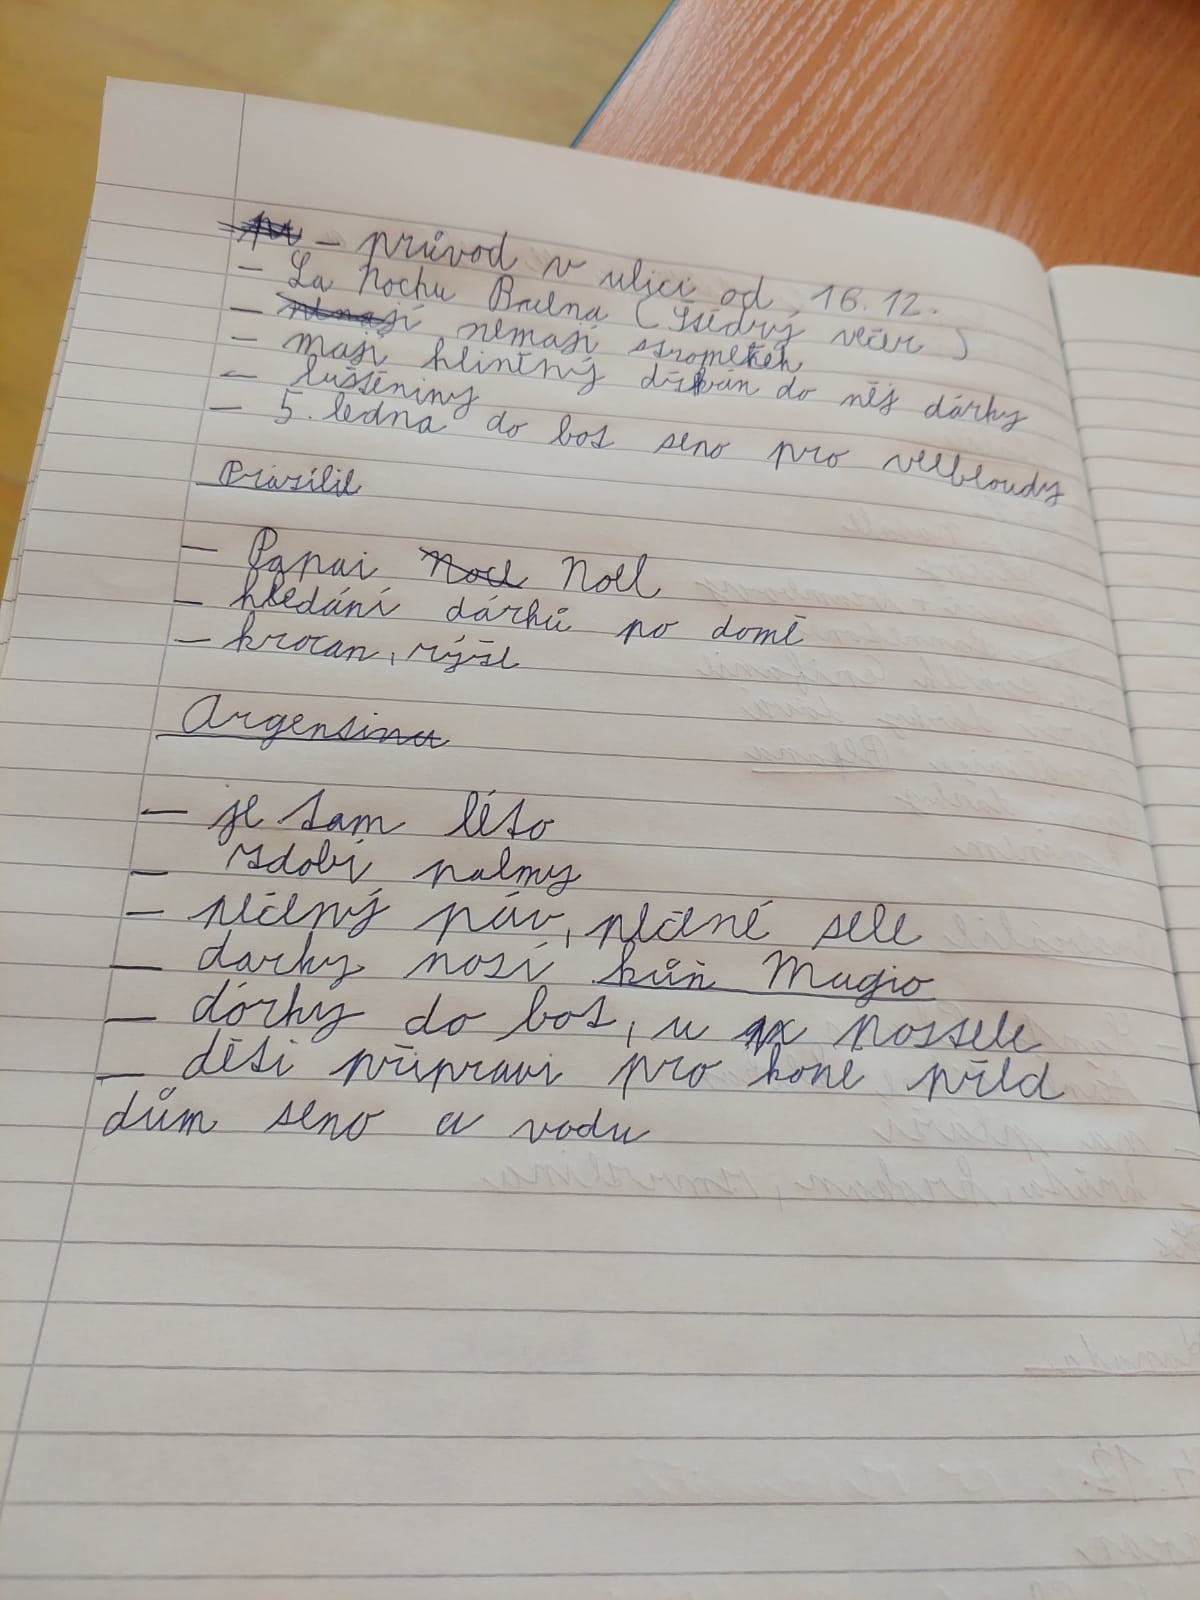 - průvod v ulici od 16.12.
- La Nochu Buena (Štědrý večer)
- nemají stromeček
- mají hliněný džbán do něj dárky
- luštěniny
- 5. ledna do bot seno pro velbloudy
Brazílie
- Papai Noel
- hledání dárků po domě
- krocan, rýže
Argentina
- je tam léto
- zdobí palmy
- pečený páv, pečené sele
- darky nosí kůň Magio
- dárky do bot, u postele
- děti připraví pro koně před
dům seno a vodu